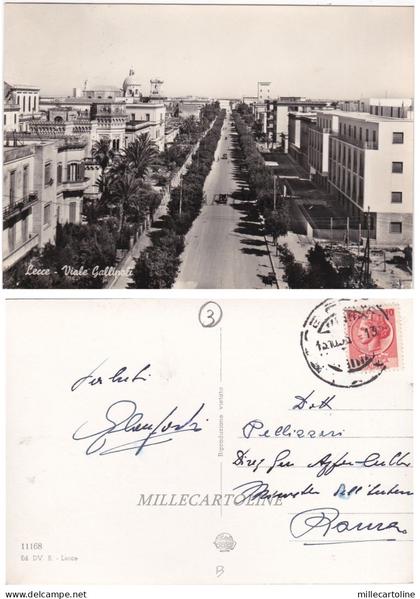 Lecce - Viale Gallipoli
3
Saluti
Riproduzione vietata
Dott
Pellizzari
Dirg Gen Affari Culto
Ministero dell'Interno
Roma
MILLECARTOLINE
11168
Ed. DV. S. - Lecce
B
millecartoline